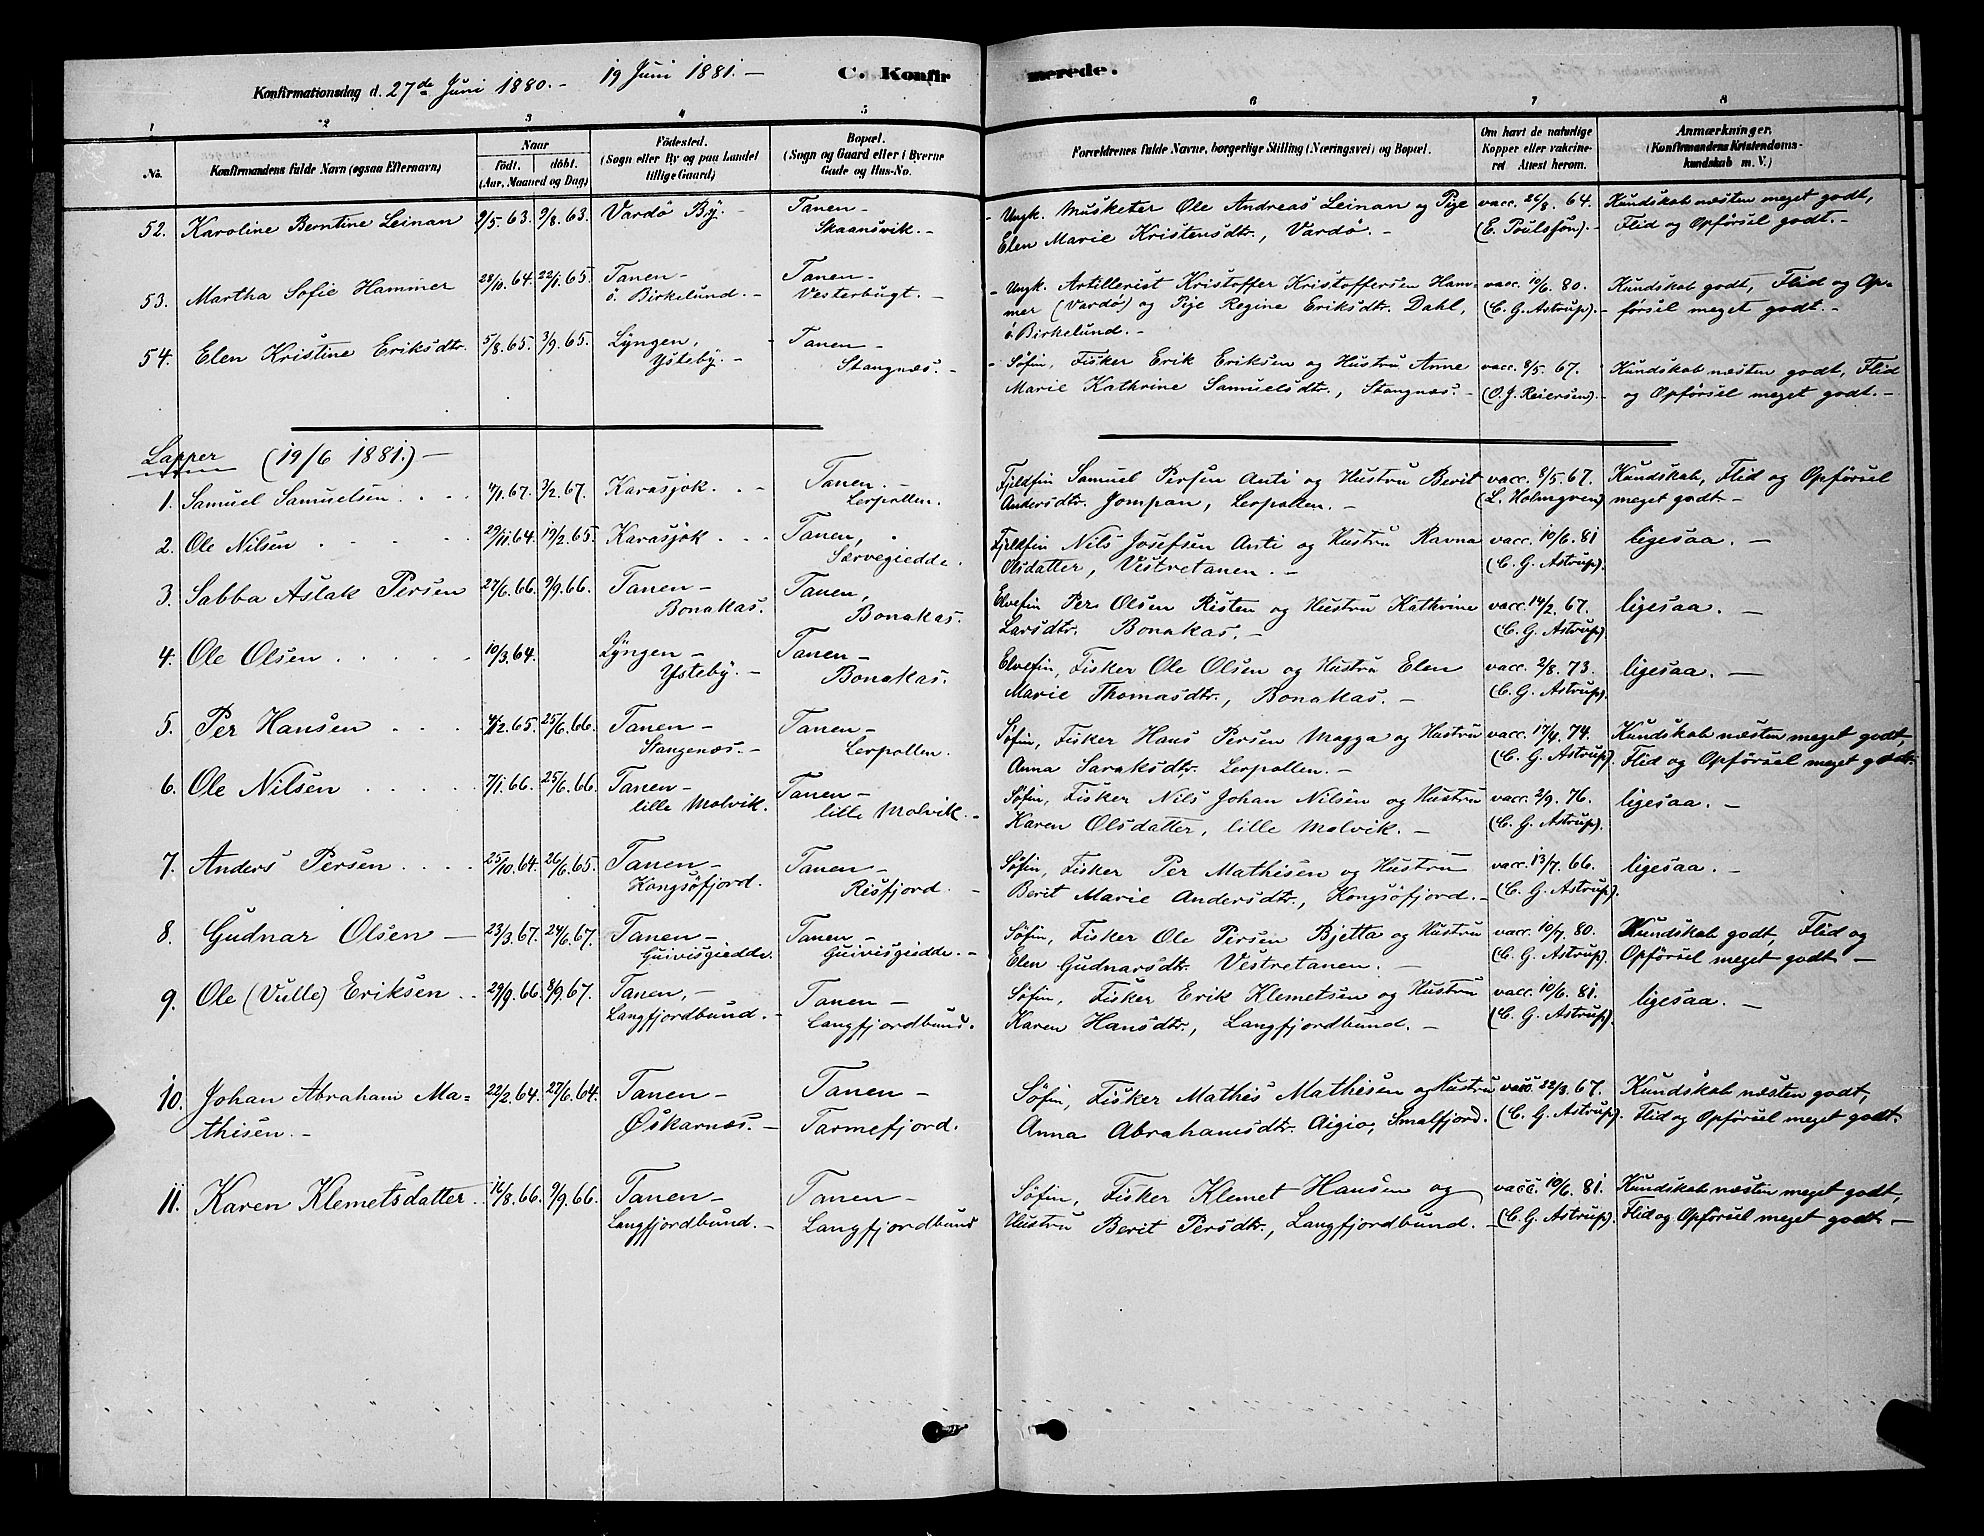 C. Konfirmerede.
Konfirmationsdag d. 27de Juni 1880. - 19 Juni 1881. -
1 2 3 4 5 6 7 8
No. Konfirmandens fulde Navn (ogsaa Efternavn) Naar födt. döbt. (Aar, Maaned og Dag) Födested. (Sogn eller By og paa Landet tillige Gaard) Bopæl. (Sogn og Gaard eller i Byerne Gade og Hus-No. Forældrenes fulde Navne, borgerlige Stilling (Næringsvei) og Bopæl. Om havt de naturlige Kopper eller vakcineret Attest herom. Anmærkninger. (Konfirmandens Kristendomskundskab m. V.)
52. Karoline Berntine Leinan 9/5.63. 9/8.63. Vardö By. - Tanen - - Ungk. Musketer Ole Andreas Leinan og Pige vacc. 26/8. 64. Kundskab næsten meget godt,
Skaansvik. - Elen Marie Kristensdtr., Vardö. - (E. Poulsson). - Flid og Opförsel godt. -
53. Martha Sofie Hammer 28/10.64. 22/1.65. Tanen - Tanen - - Ungk. Artillerist Kristoffer Kristoffersen Ham- vacc. 10/6. 80. Kundskab godt, Flid og Op-
ö. Birkelund. - Vesterbugt. - mer (Vardö) og Pige Regine Eriksdtr. Dahl, (C. G. Astrup). - försel meget godt. -
ö. Birkelund. -
54. Elen Kristine Eriksdtr. 5/8.65. 3/9.65. Lyngen, Tanen - - Söfin, Fisker Erik Eriksen og Hustru Anne vacc. 8/5. 67. Kundskab næsten godt, Flid
Ysteby. - Stangnæs. - Marie Kathrine Samuelsdtr., Stangnæs. - (O. J. Reiersen). - og Opförsel meget godt. -
Lapper (19/6 1881.) -
1. Samuel Samuelsen. . . 4/1.67. 3/2.67. Karasjok. . - Tanen. - Fjeldfin Samuel Persen Anti og Hustru Berit vacc. 8/5. 67. Kundskab, Flid og Opförsel
Lerpollen. Andersdtr. Jompan, Lerpollen. - (L. Holmgren) meget godt -
2. Ole Nilsen . . . . 29/11.64. 19/2.65. Karasjok . . . Tanen, Fjeldfin Nils Josefsen Anti og Hustru Ravna vacc. 10/6. 81 ligesaa. -
Særvegiedde. Olsdatter, Vestretanen. - (C. G. Astrup).
3. Sabba Aslak Persen 27/6.66. 9/9.66. Tanen - Tanen, Elvefin Per Olsen Risten og Hustru Kathrine vacc. 14/2. 67. ligesaa. -
Bonakas. Bonakas. Larsdtr. Bonakas. - (C. G. Astrup).
4. Ole Olsen . . . . . 10/3.64. Lyngen - Tanen - Elvefin, Fisker Ole Olsen og Hustru Elen vacc. 2/8. 73. ligesaa. -
Ysteby. - Bonakas. Marie Thomasdtr., Bonakas. - (C. G. Astrup).
5. Per Hansen . . . 4/12.65. 25/6.66. Tanen - Tanen - Söfin, Fisker Hans Persen Magga og Hustru vacc. 17/4. 74. Kundskab næsten meget godt,
Stangenæs. - Lerpollen. Anna Saraksdtr. Lerpollen. - (C. G. Astrup). Flid og Opförsel meget godt.
6. Ole Nilsen . . . . . 7/1.66. 25/6.66. Tanen - Tanen - Söfin, Fisker Nils Johan Nilsen og Hustru vacc. 2/9. 76. ligesaa. -
lille Molvik. lille Molvik. - Karen Olsdatter, lille Molvik. - (C. G. Astrup).
7. Anders Persen . . . . 25/10.64. 26/6.65. Tanen - Tanen - Söfin, Fisker Per Mathisen og Hustru vacc. 13/7. 66. ligesaa. -
Kongsöfjord. Risfjord. - Berit Marie Andersdtr., Kongsöfjord. - (C. G. Astrup).
8. Gudnar Olsen - 23/3.67. 24/6.67. Tanen - Tanen - Söfin, Fisker Ole Persen Bjetta og Hustru vacc. 10/7. 80. Kundskab godt, Flid og
Guivisgiedde. Guivisgiedde. - Elen Gudnarsdtr. Vestretanen. - (C. G. Astrup). Opförsel meget godt -
9. Ole (Vulle) Eriksen . . 29/9.66. 8/9.67. Tanen, - Tanen - Söfin, Fisker Erik Klemetsen og Hustru vacc. 10/6. 81. ligesaa. -
Langfjordbund. - Langfjordbund. Karen Hansdtr., Langfjordbund. - (C. G. Astrup).
10. Johan Abraham Ma= 22/2.64. 27/6.64. Tanen - Tanen - Söfin, Fisker Mathis Mathisen og Hustru vacc. 22/3. 67. Kundskab næsten godt,
thisen. - Öskarnæs. - Tarmefjord. Anna Abrahamsdtr. Aigio, Smalfjord. (C. G. Astrup). Flid og Opförsel meget godt.
11. Karen Klemetsdatter. . 16/8.66. 9/9.66. Tanen - Tanen - Söfin, Fisker Klemet Hansen og vacc. 10/6. 81. Kundskab næsten meget godt,
Langfjordbund. - Langfjordbund Hustru Berit Persdtr., Langfjordbund. - (C. G. Astrup). Flid og Opförsel meget godt -